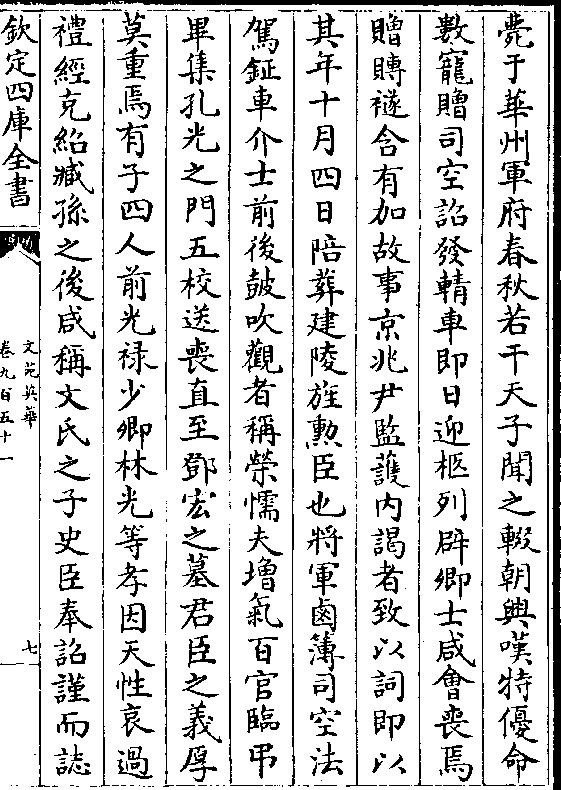 薨于華州軍府春秋若干天子聞之輟朝興嘆特優命
數寵贈司空詔發輤車即日迎柩列辟卿士咸會喪焉
贈賻襚含有加故事京兆尹監護内謁者致以詞即以
其年十月四日陪葬建陵旌勲臣也將軍鹵簿司空法
駕鉦車介士前後鼓吹觀者稱榮懦夫増氣百官臨弔
畢集孔光之門五校送喪直至鄧宏之墓君臣之義厚
莫重焉有子四人前光禄少卿林光等孝因天性哀過
禮經克紹臧孫之後咸稱文氏之子史臣奉詔謹而誌
欽定四庫全書
文苑英華
卷九百五十一
七